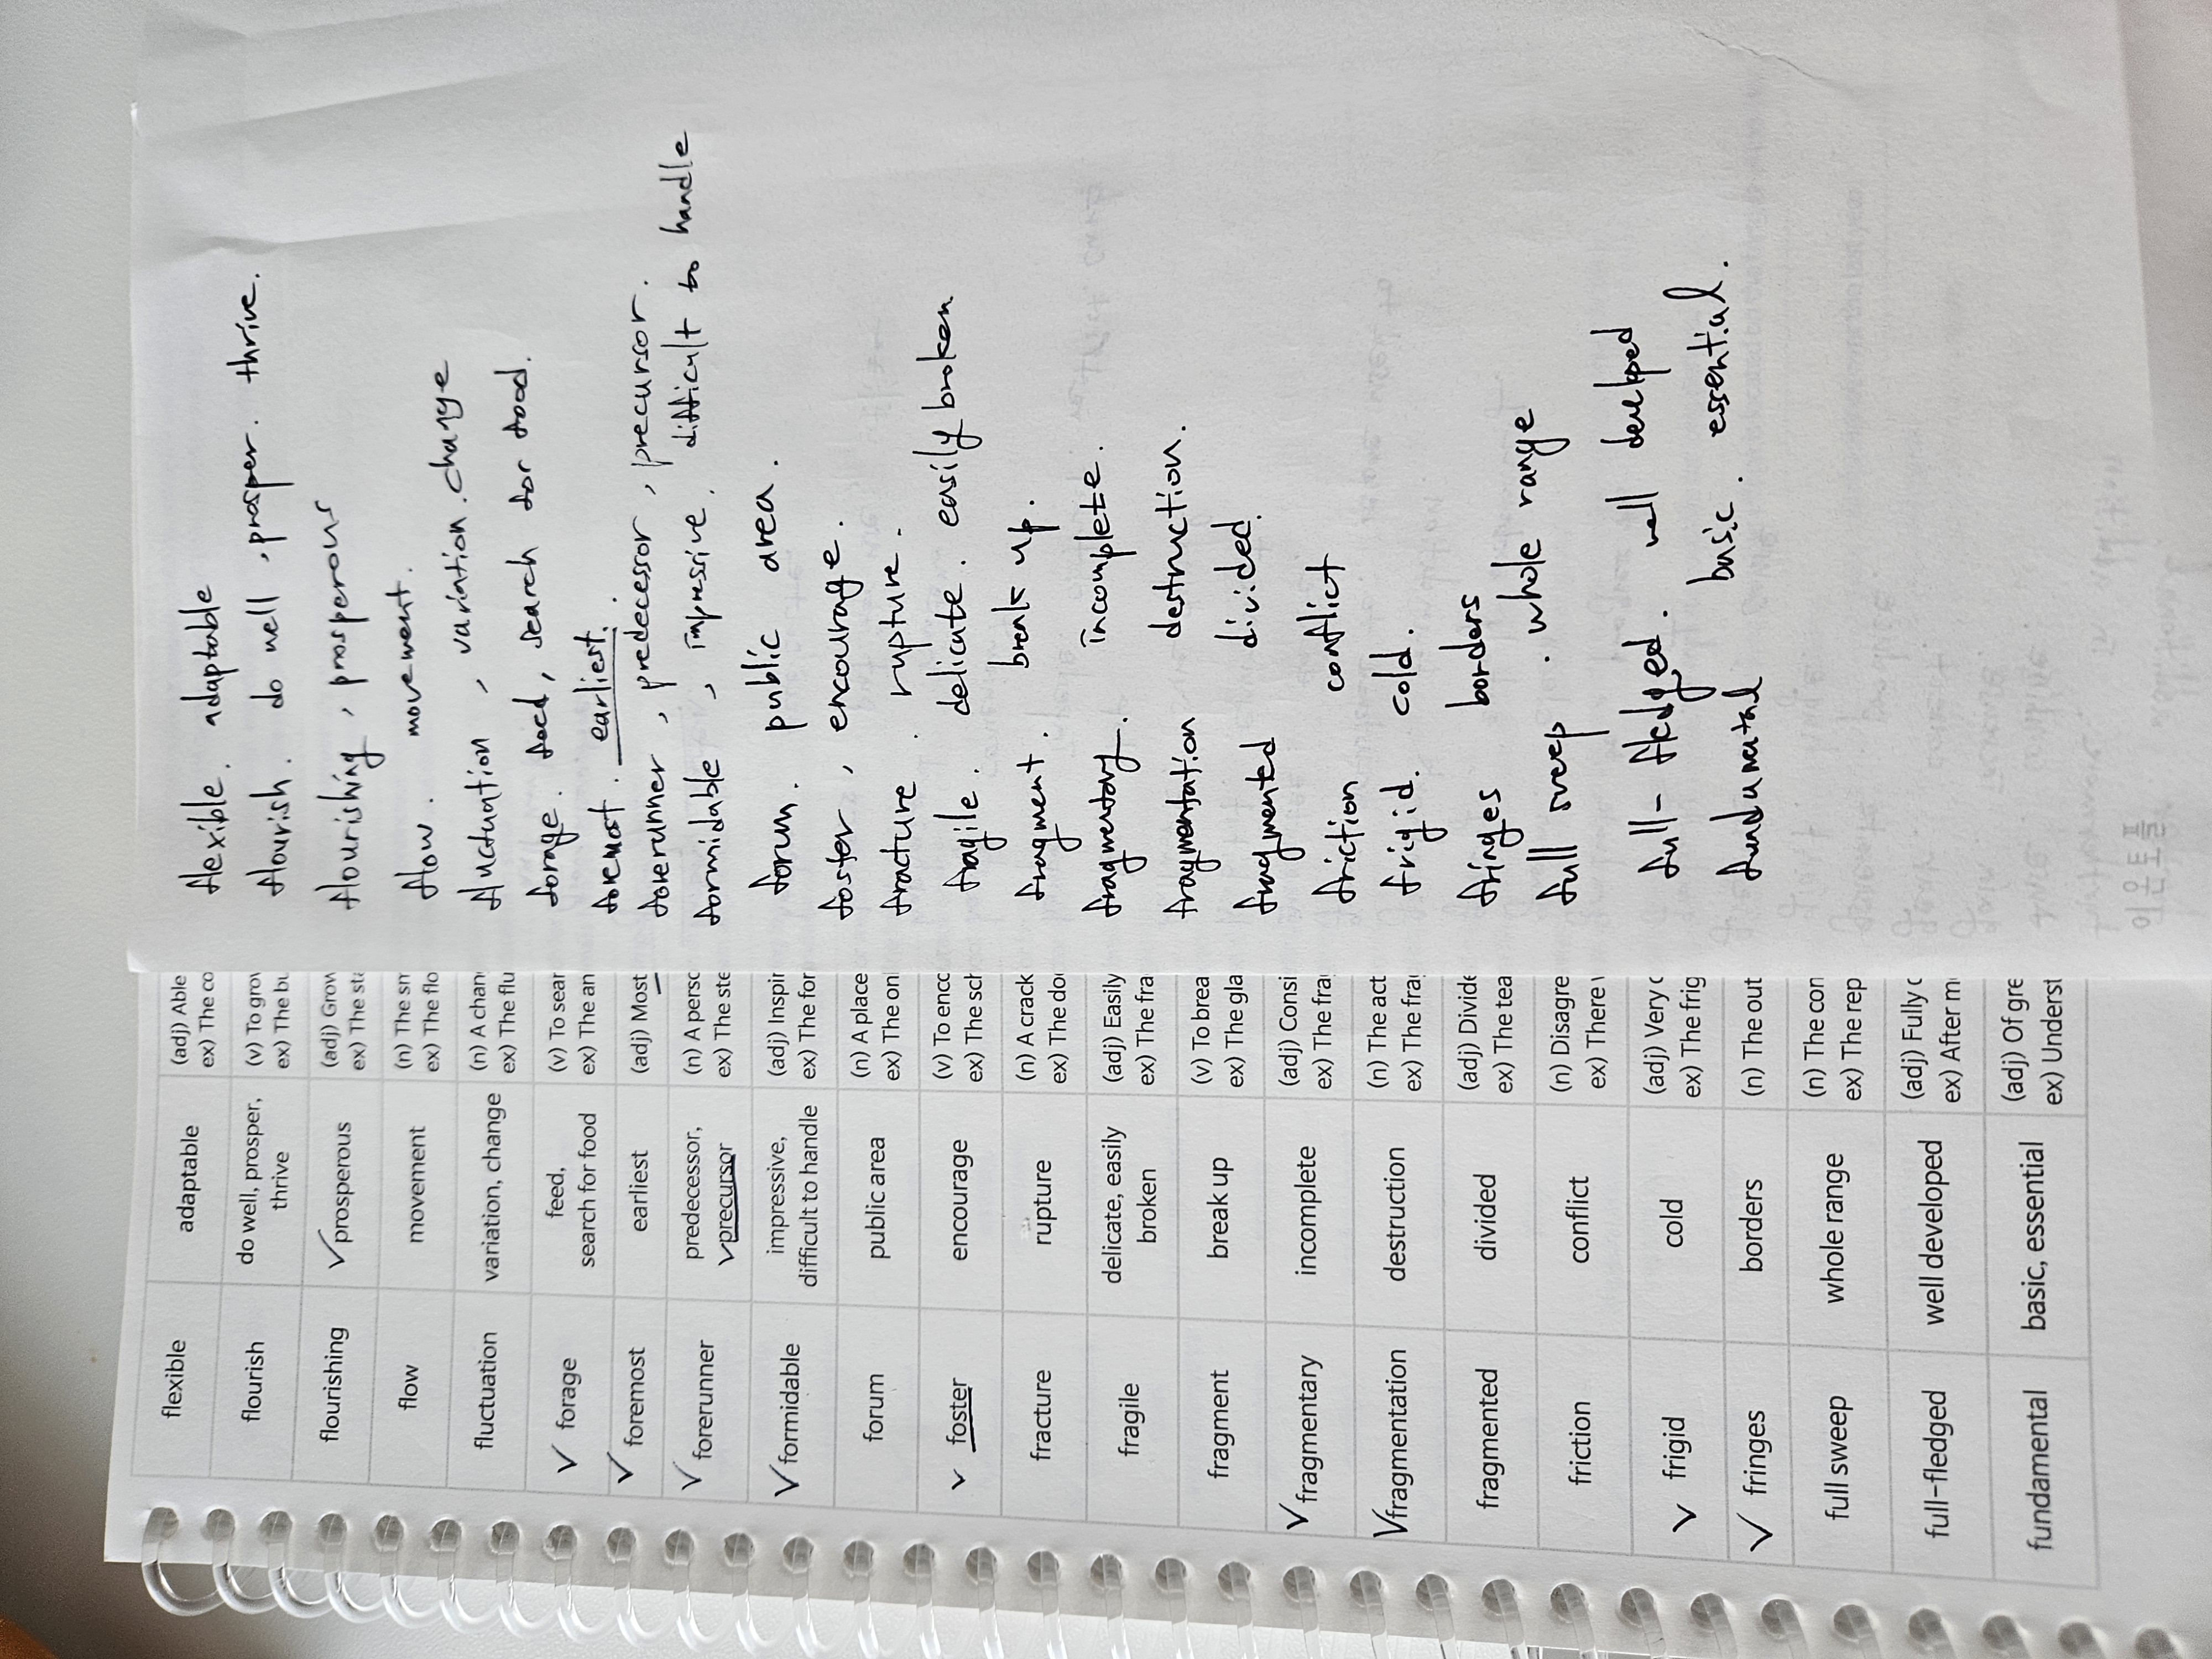 flexible
adaptable
(adj) Able
ex) The co
flourish
do well, prosper,
thrive
(v) To grow
ex) The bu
flourishing
✓prosperous
(adj) Grow
ex) The sta
flow
movement
(n) The sm
ex) The flo
fluctuation
variation, change
(n) A chan
ex) The flu
✓ forage
feed,
search for food
(v) To sear
ex) The an
✓ foremost
earliest
(adj) Most
✓ forerunner
predecessor,
✓precursor
(n) A perso
ex) The ste
✓ formidable
impressive,
difficult to handle
(adj) Inspir
ex) The for
forum
public area
(n) A place
ex) The on
✓ foster
encourage
(v) To enco
ex) The sch
fracture
rupture
(n) A crack
ex) The do
fragile
delicate, easily
broken
(adj) Easily
ex) The fra
fragment
break up
(v) To brea
ex) The gla
✓ fragmentary
incomplete
(adj) Consi
ex) The fra
✓ fragmentation
destruction
(n) The act
ex) The fra
fragmented
divided
(adj) Divide
ex) The tea
friction
conflict
(n) Disagre
ex) There
✓ frigid
cold
(adj) Very c
ex) The frig
✓ fringes
borders
(n) The out
full sweep
whole range
(n) The con
ex) The rep
full-fledged
well developed
(adj) Fully c
ex) After m
fundamental
basic, essential
(adj) Of gre
ex) Underst
flexible. adaptable
flourish. do well, prosper. thrive.
flourishing, prosperous
flow. movement.
fluctuation, variation. change
forage. feed, search for food.
foremost. earliest.
forerunner, predecessor, precursor.
formidable, impressive. difficult to handle
forum. public area.
foster, encourage.
fracture. rupture.
fragile. delicate. easily broken
fragment. break up.
fragmentary. incomplete.
fragmentation destruction.
fragmented divided.
friction conflict
frigid. cold.
fringes borders
full sweep. whole range
full-fledged. well developed
fundamental basic. essential.